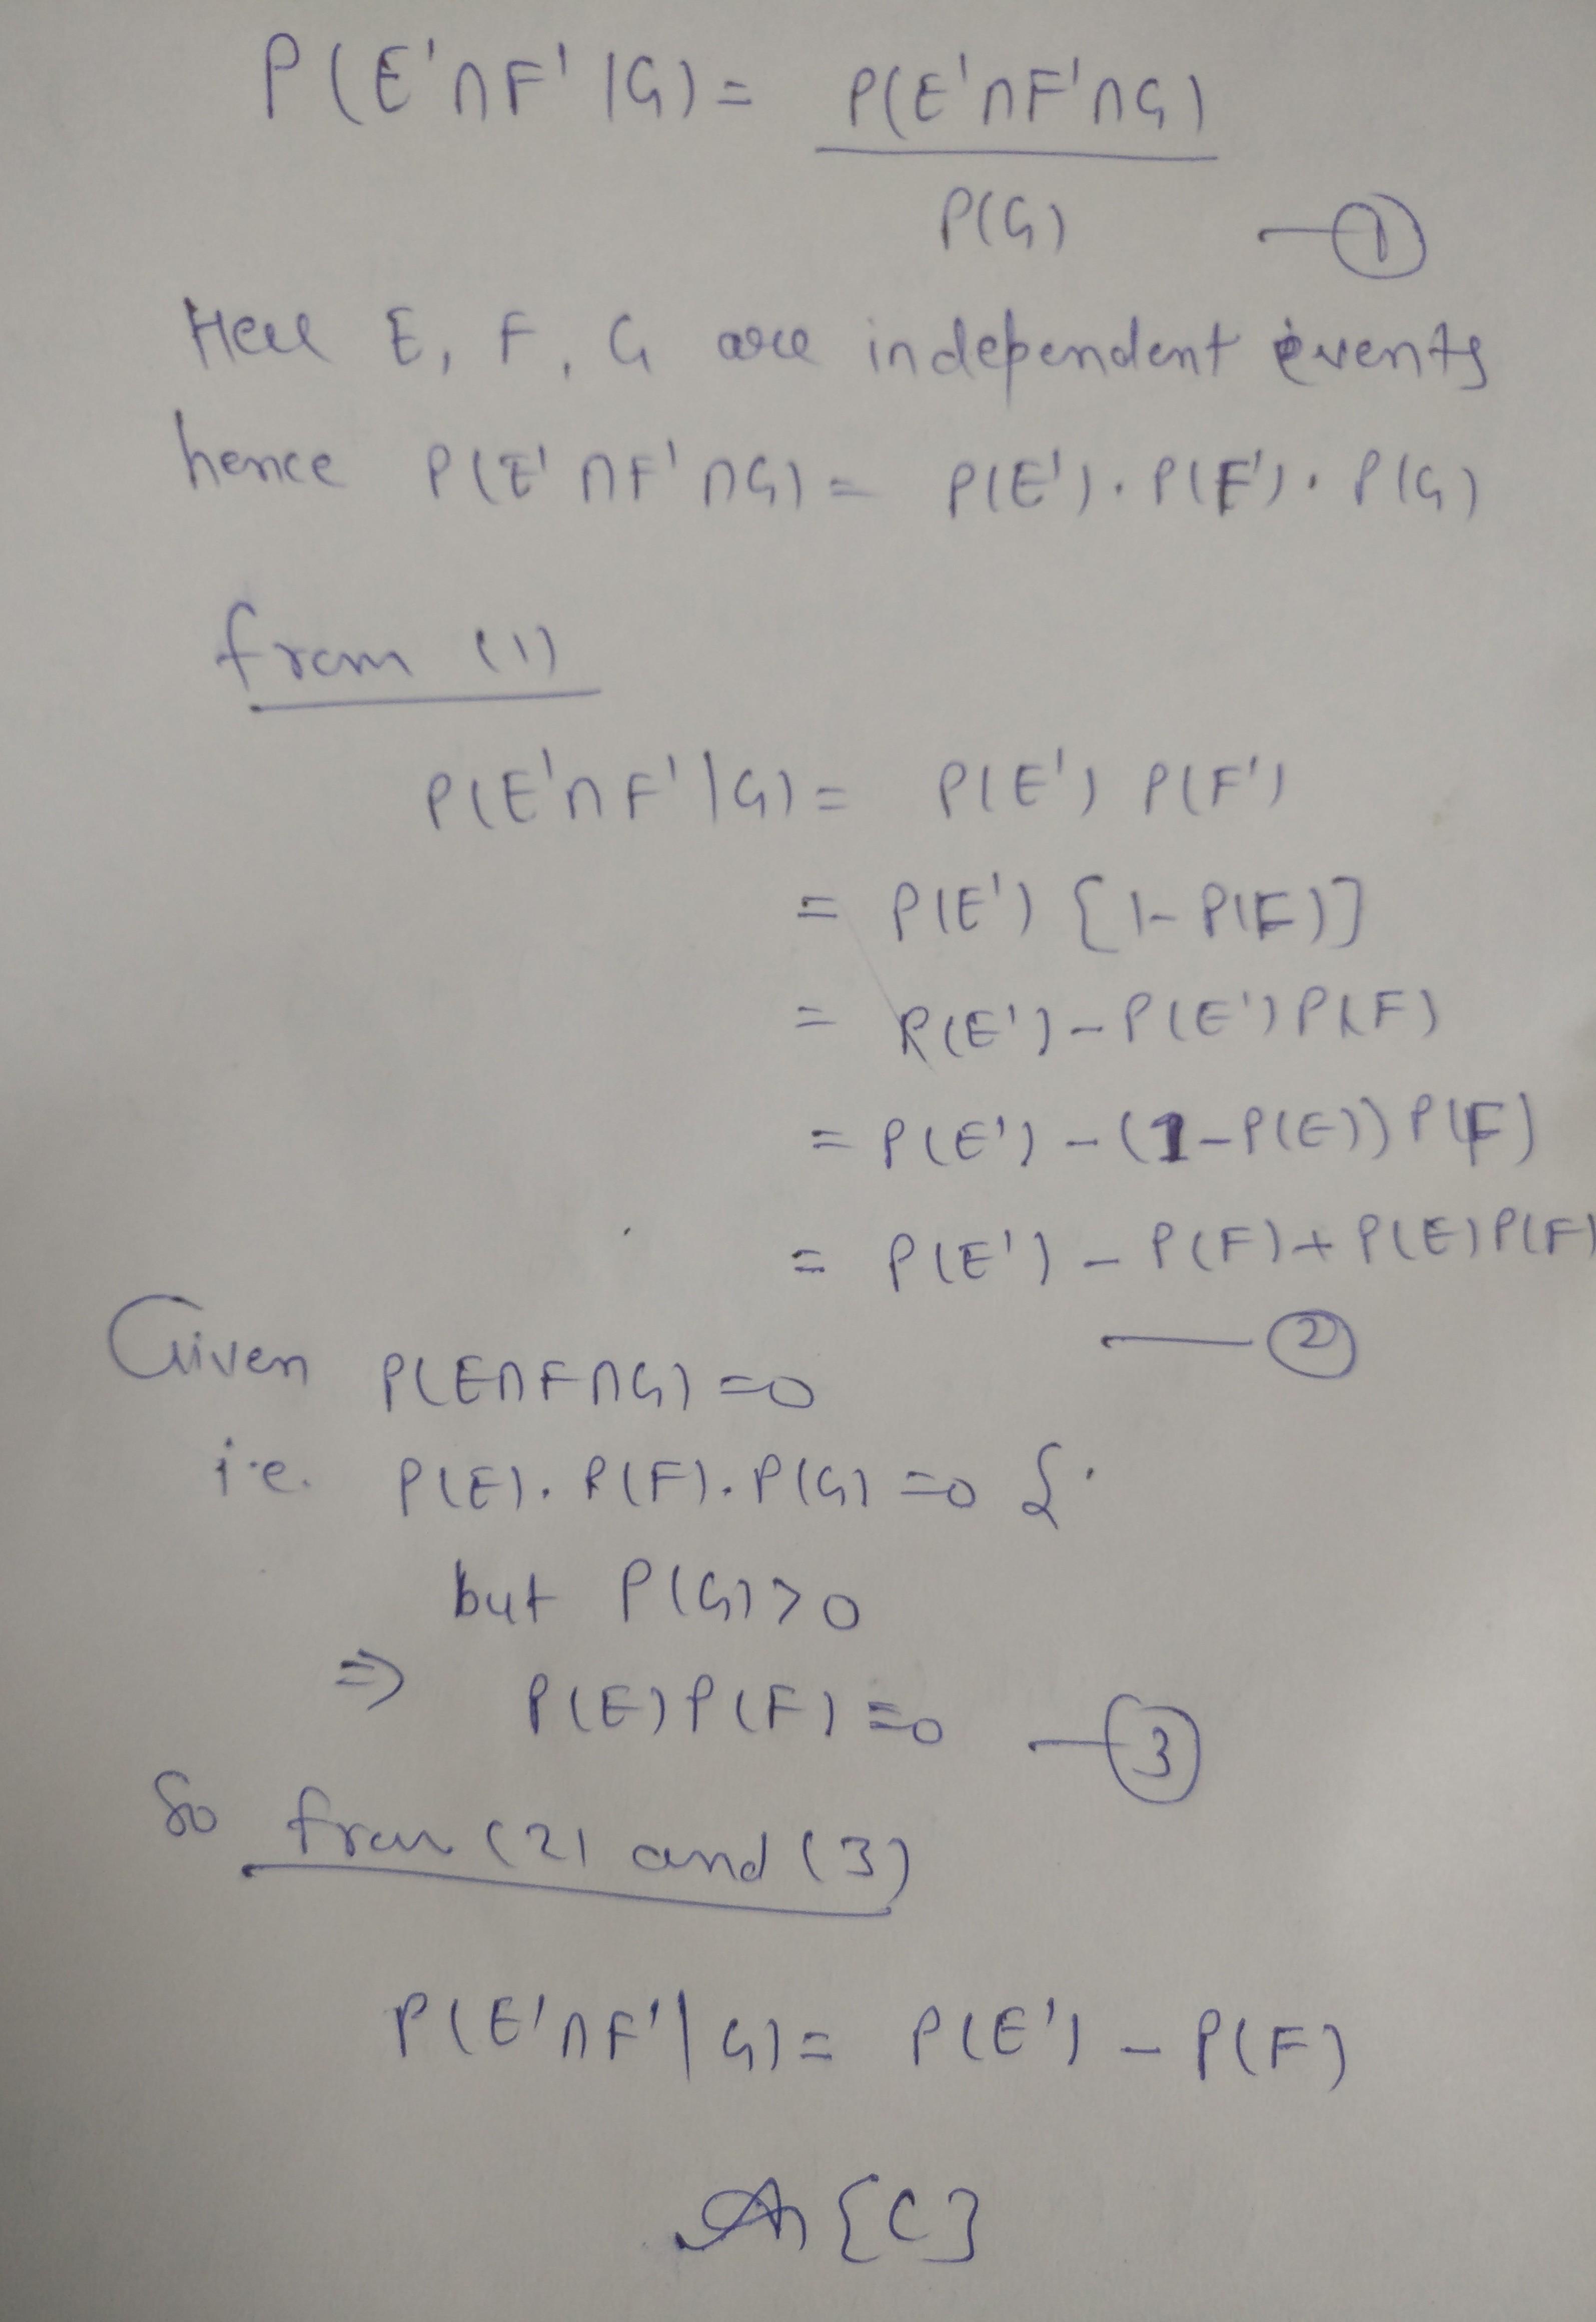 P(E'∩F'|G) = P(E'∩F'∩G)
P(G) —①
Here E, F, G are independent events
hence P(E'∩F'∩G) = P(E').P(F').P(G)
from (1)
P(E'∩F'|G) = P(E') P(F')
= P(E') [1-P(F)]
= P(E') - P(E') P(F)
= P(E') - (1-P(E)) P(F)
= P(E') - P(F) + P(E) P(F)
—②
Given P(E∩F∩G) = 0
i.e. P(E).P(F).P(G) = 0 {.
but P(G) > 0
⇒ P(E) P(F) = 0 —③
So from (2) and (3)
P(E'∩F'|G) = P(E') - P(F)
{C}